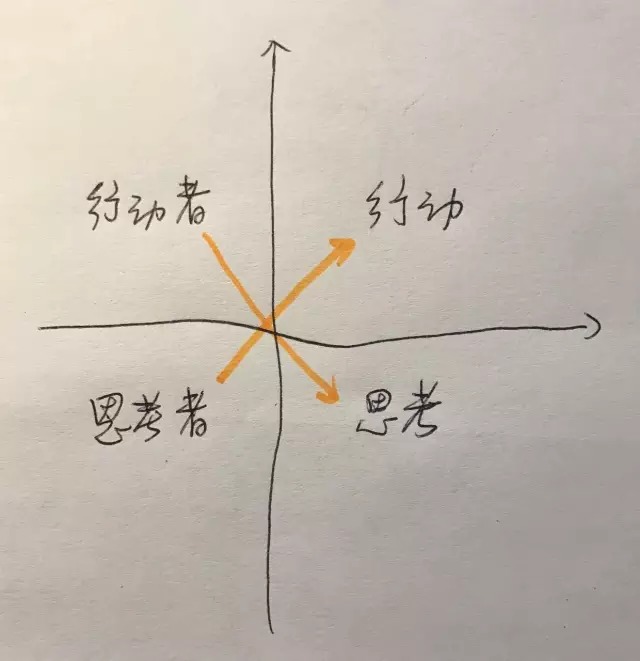 行动者
行动
思考者
思考